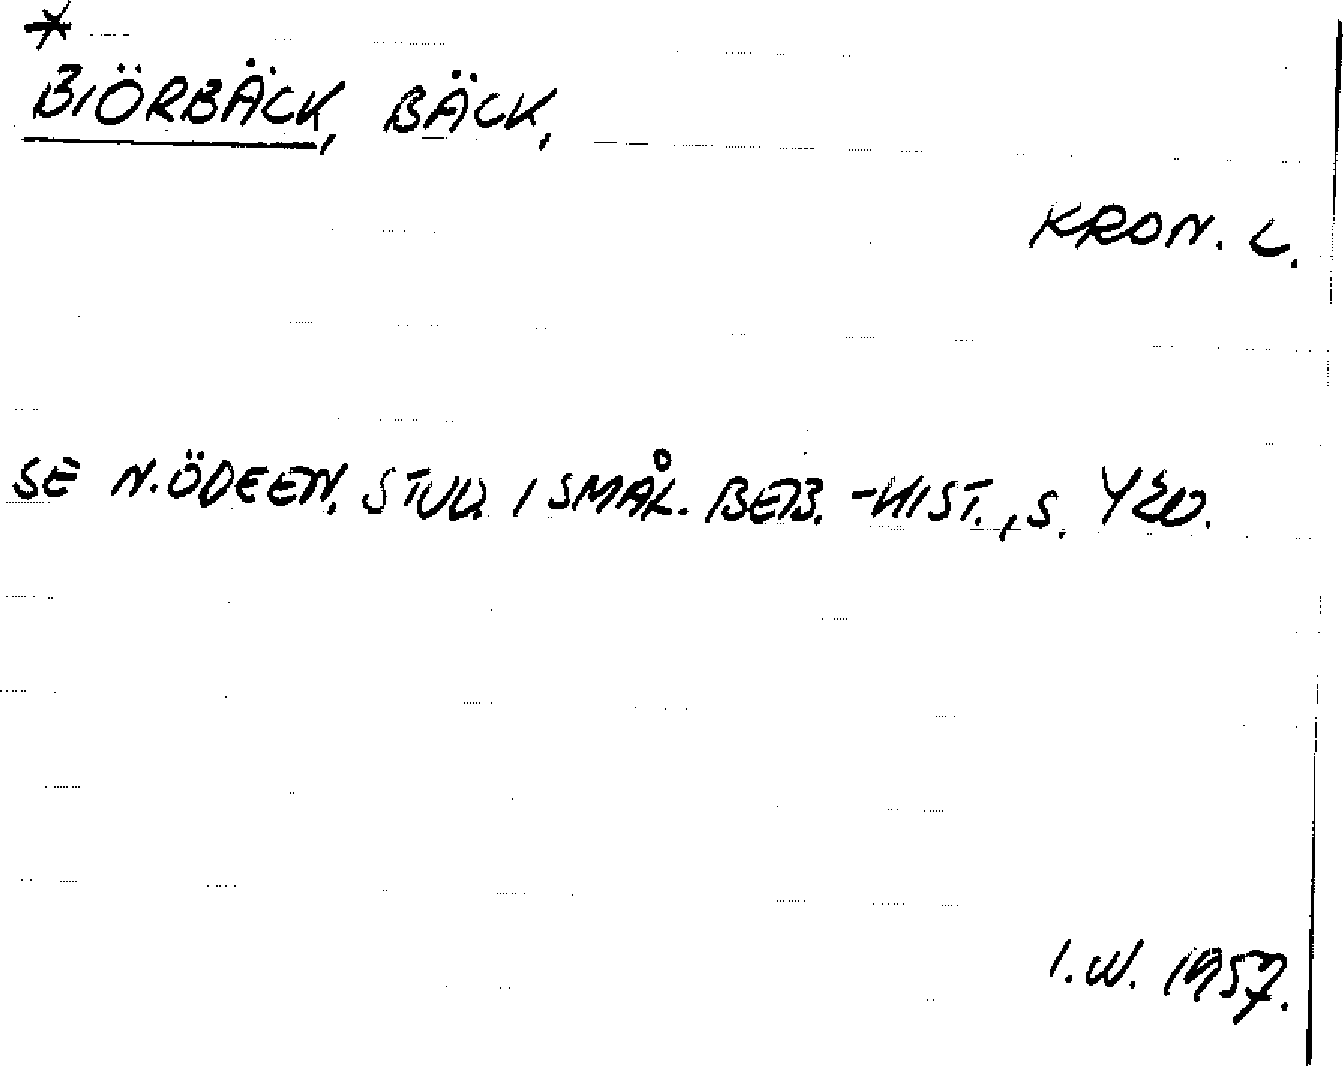 *
BIÖRBÄCK, BÄCK,
KRON. L.
SE N. ÖDEEN, STUD. I SMÅL. BEB. -HIST., S. 420.
I. W. 1957.